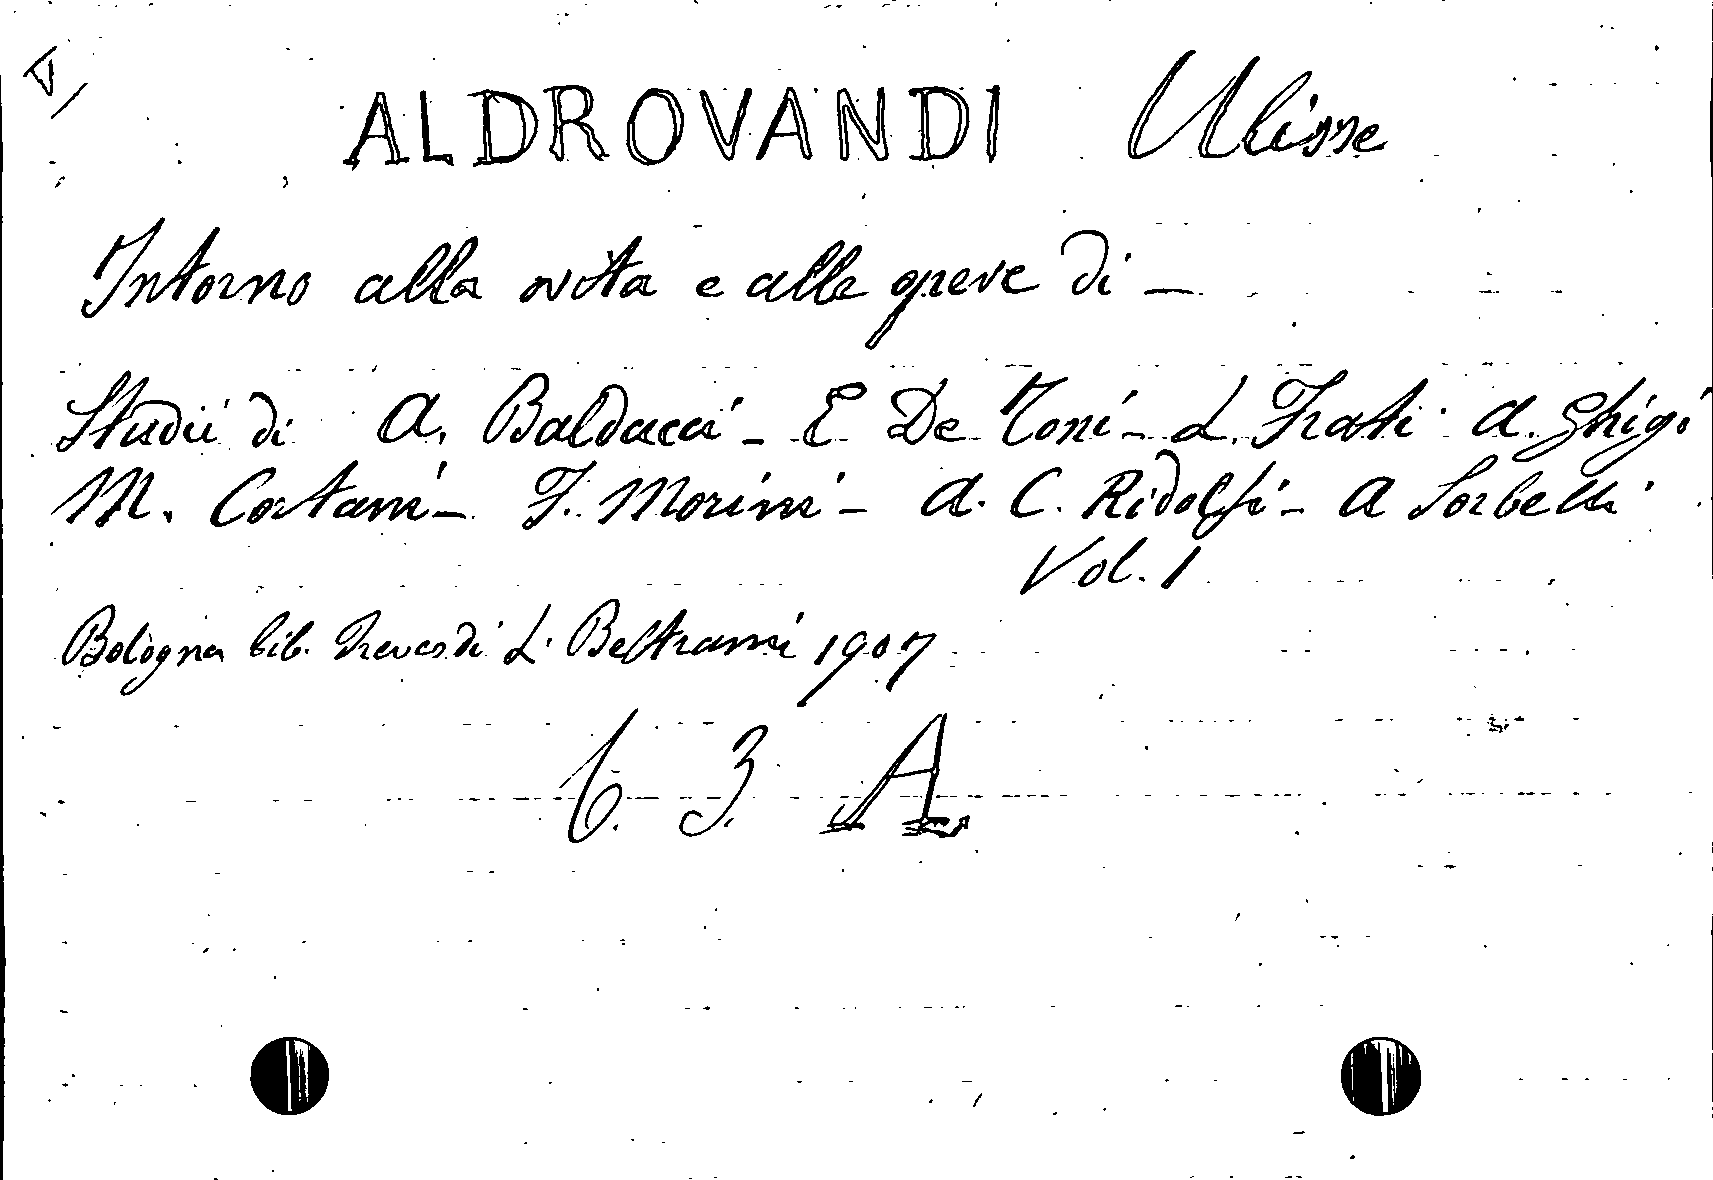 ALDROVANDI Ulisse
Intorno alla vita e alle opere di -
Studii di A. Baldacci - E De Toni - L. Frati - A. Ghigi
M. Cortani - F. Morini - A. C. Ridolfi - A Sorbelli
Vol. 1
Bologna lib. Treves di L. Beltrami 1907
6. 3. A.